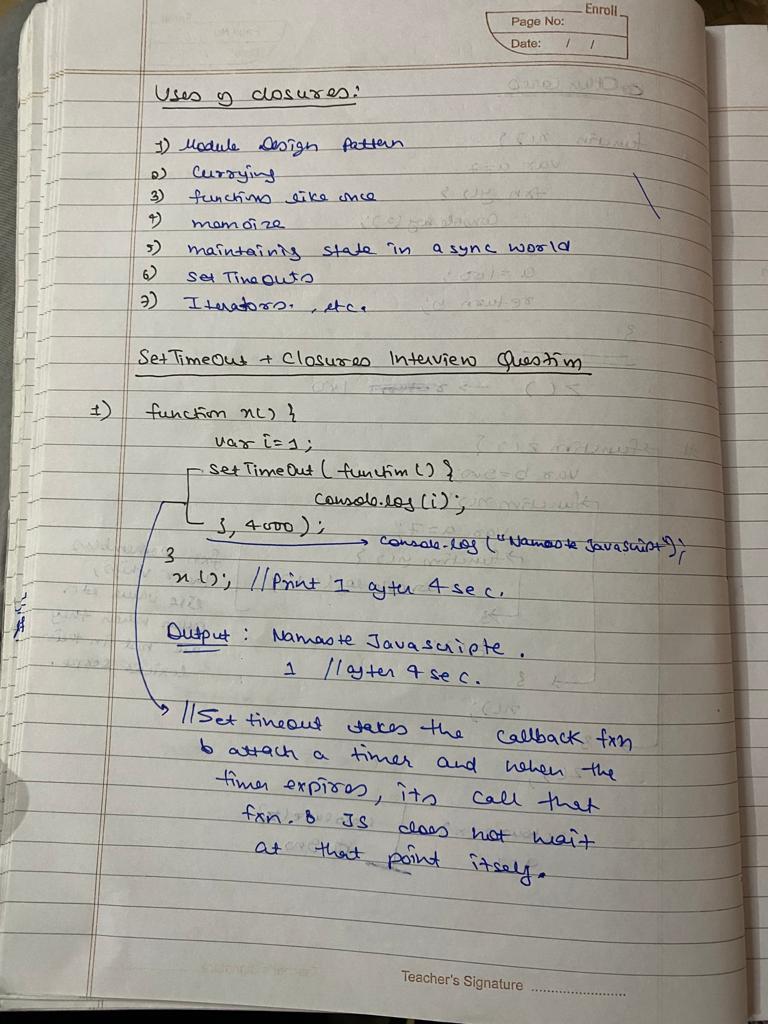 Enroll
Page No:
Date: / /
Uses of closures:
1) Module Design Pattern
2) Currying
3) functions like once
4) memoize
5) maintaining state in async world
6) Set Timeouts
7) Iterators. , etc.
SetTimeOut + Closures Interview Question
1) function x() {
var i=1;
setTimeOut( function() {
console.log(i);
}, 4000);
console.log("Namaste Javascript");
}
x(); //Print 1 after 4 sec.
Output : Namaste Javascripte.
1 //after 4 sec.
//Set timeout takes the callback fxn
& attach a timer and when the
timer expires, its call that
fxn. & JS does not wait
at that point itself.
Teacher's Signature ........................